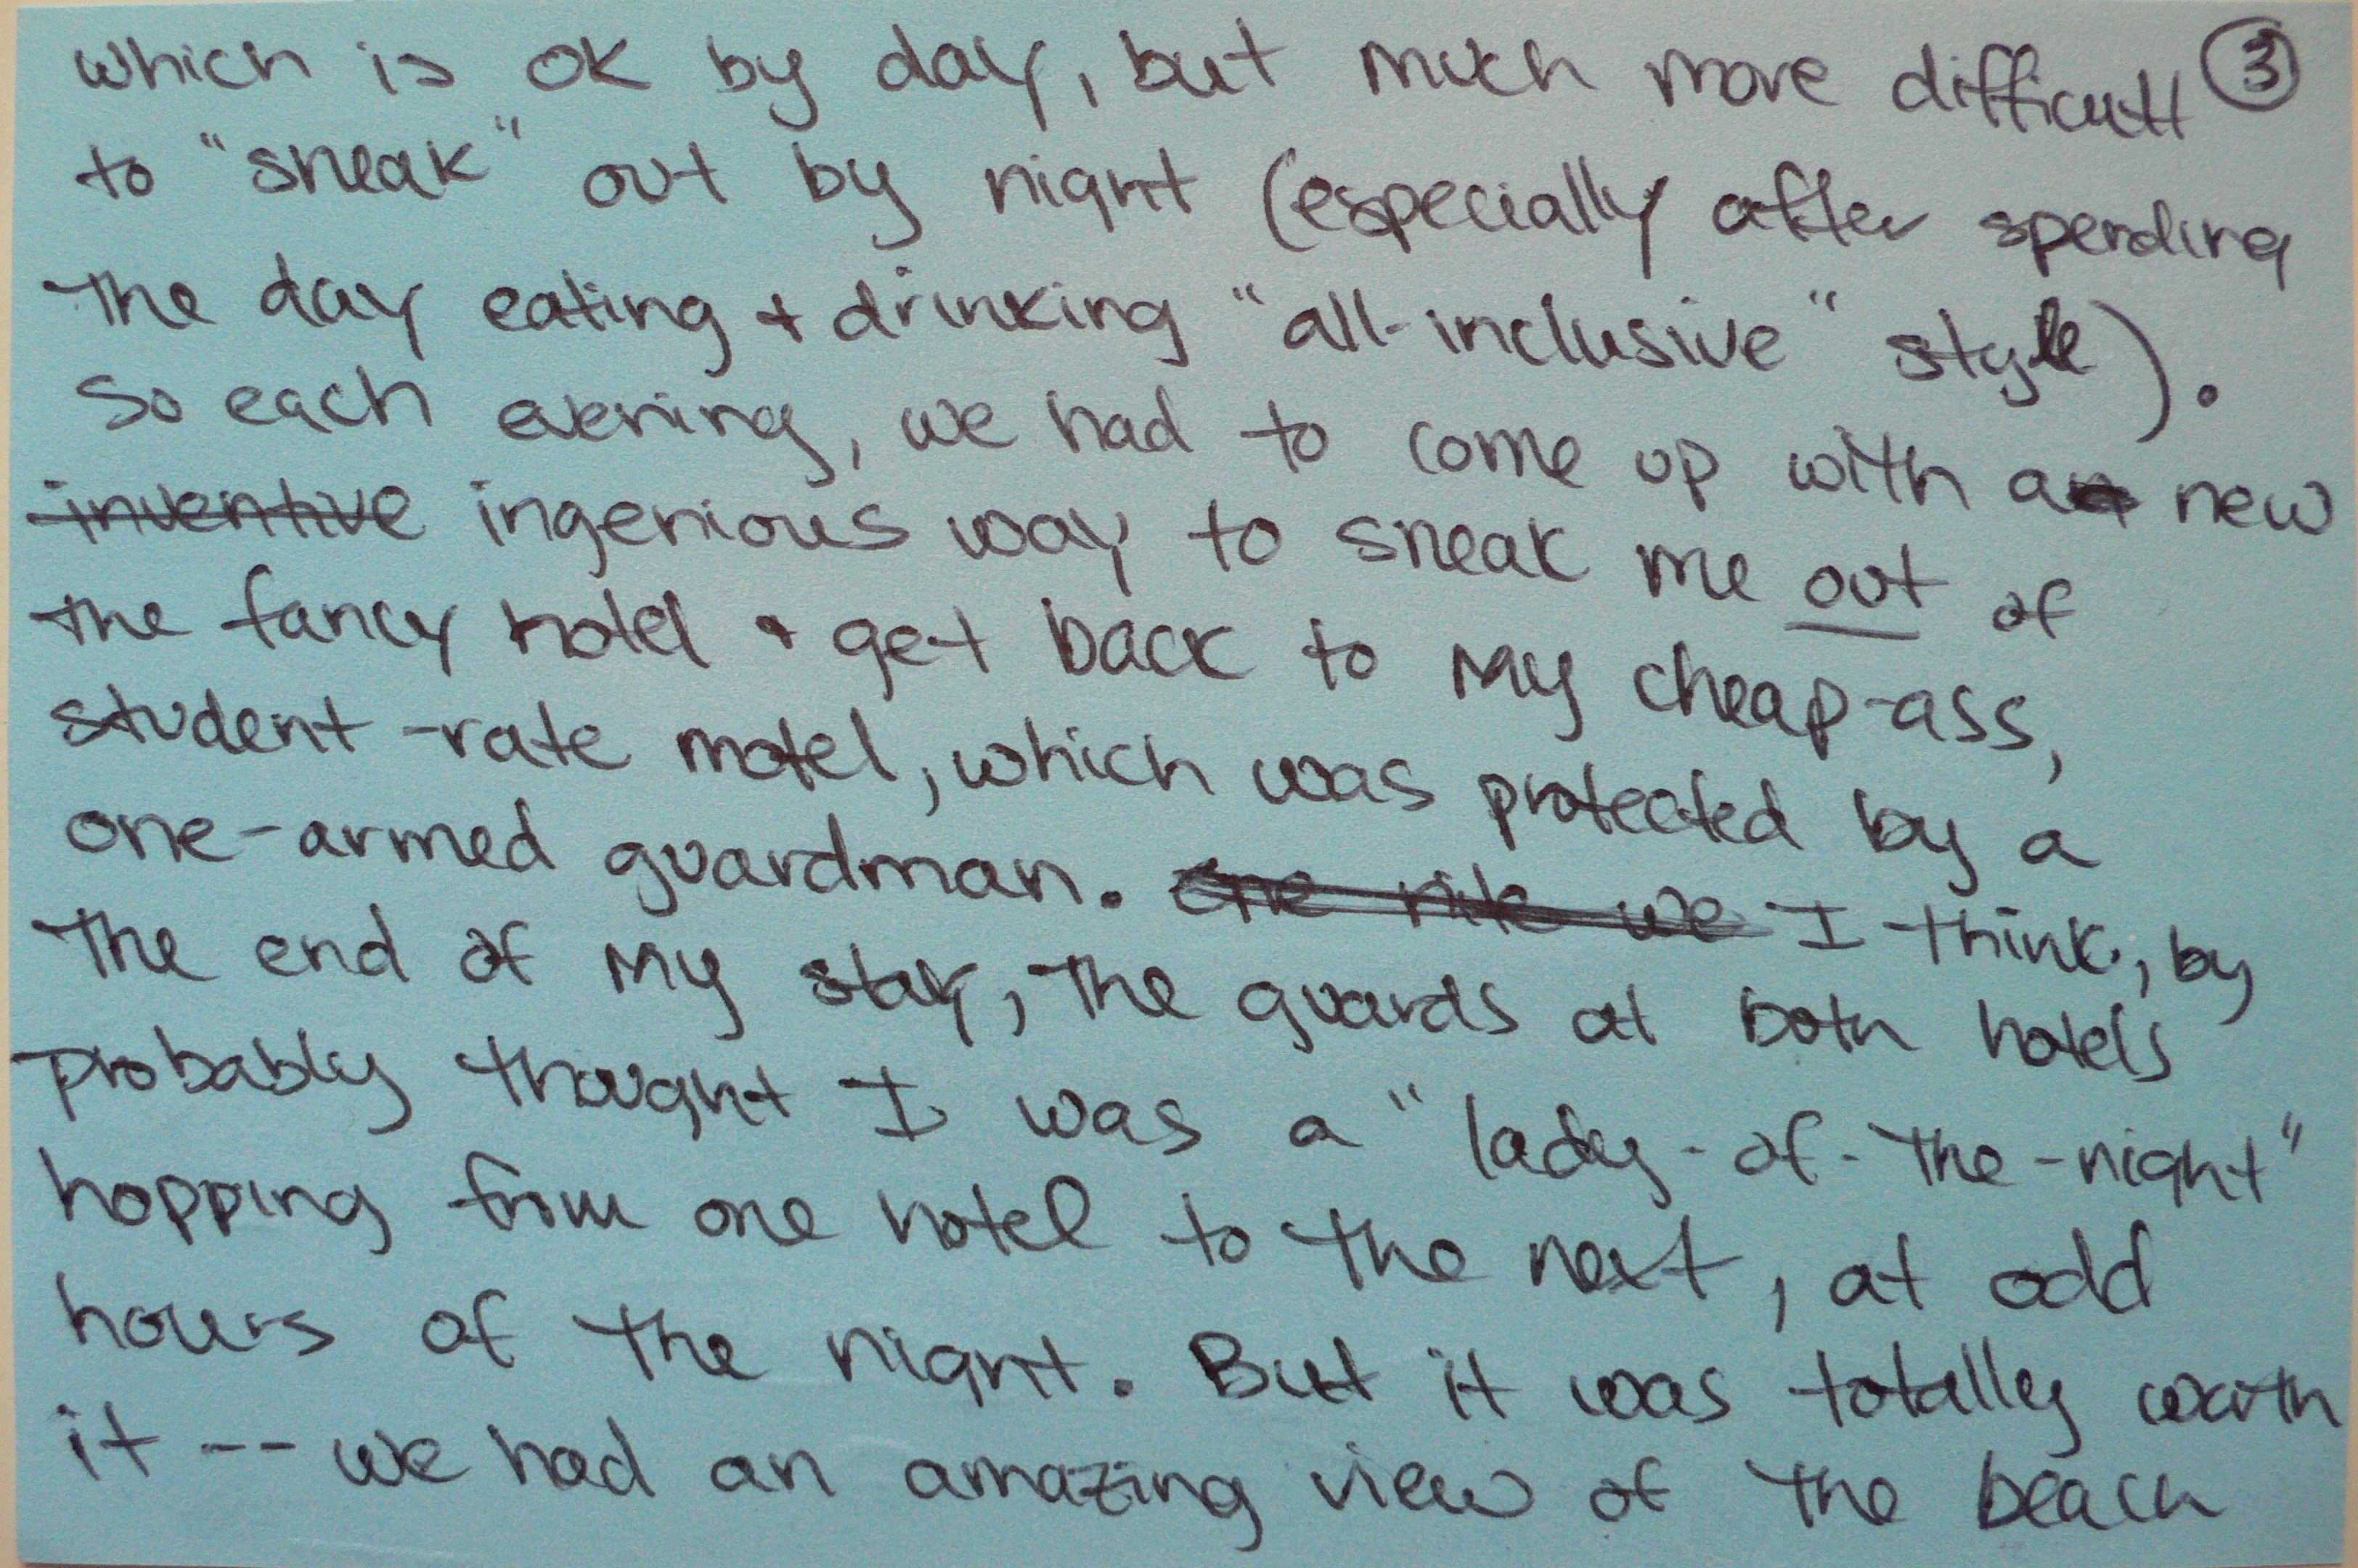 which is OK by day, but much more difficult ③
to "sneak" out by night (especially after spending
the day eating + drinking "all-inclusive" style).
So each evening, we had to come up with a new
inventive ingenious way to sneak me out of
the fancy hotel + get back to my cheap-ass,
student-rate motel, which was protected by a
one-armed guardman. One nite we I think, by
the end of my stay, the guards at both hotels
probably thought I was a "lady-of-the-night"
hopping from one hotel to the next, at odd
hours of the night. But it was totally worth
it -- we had an amazing view of the beach